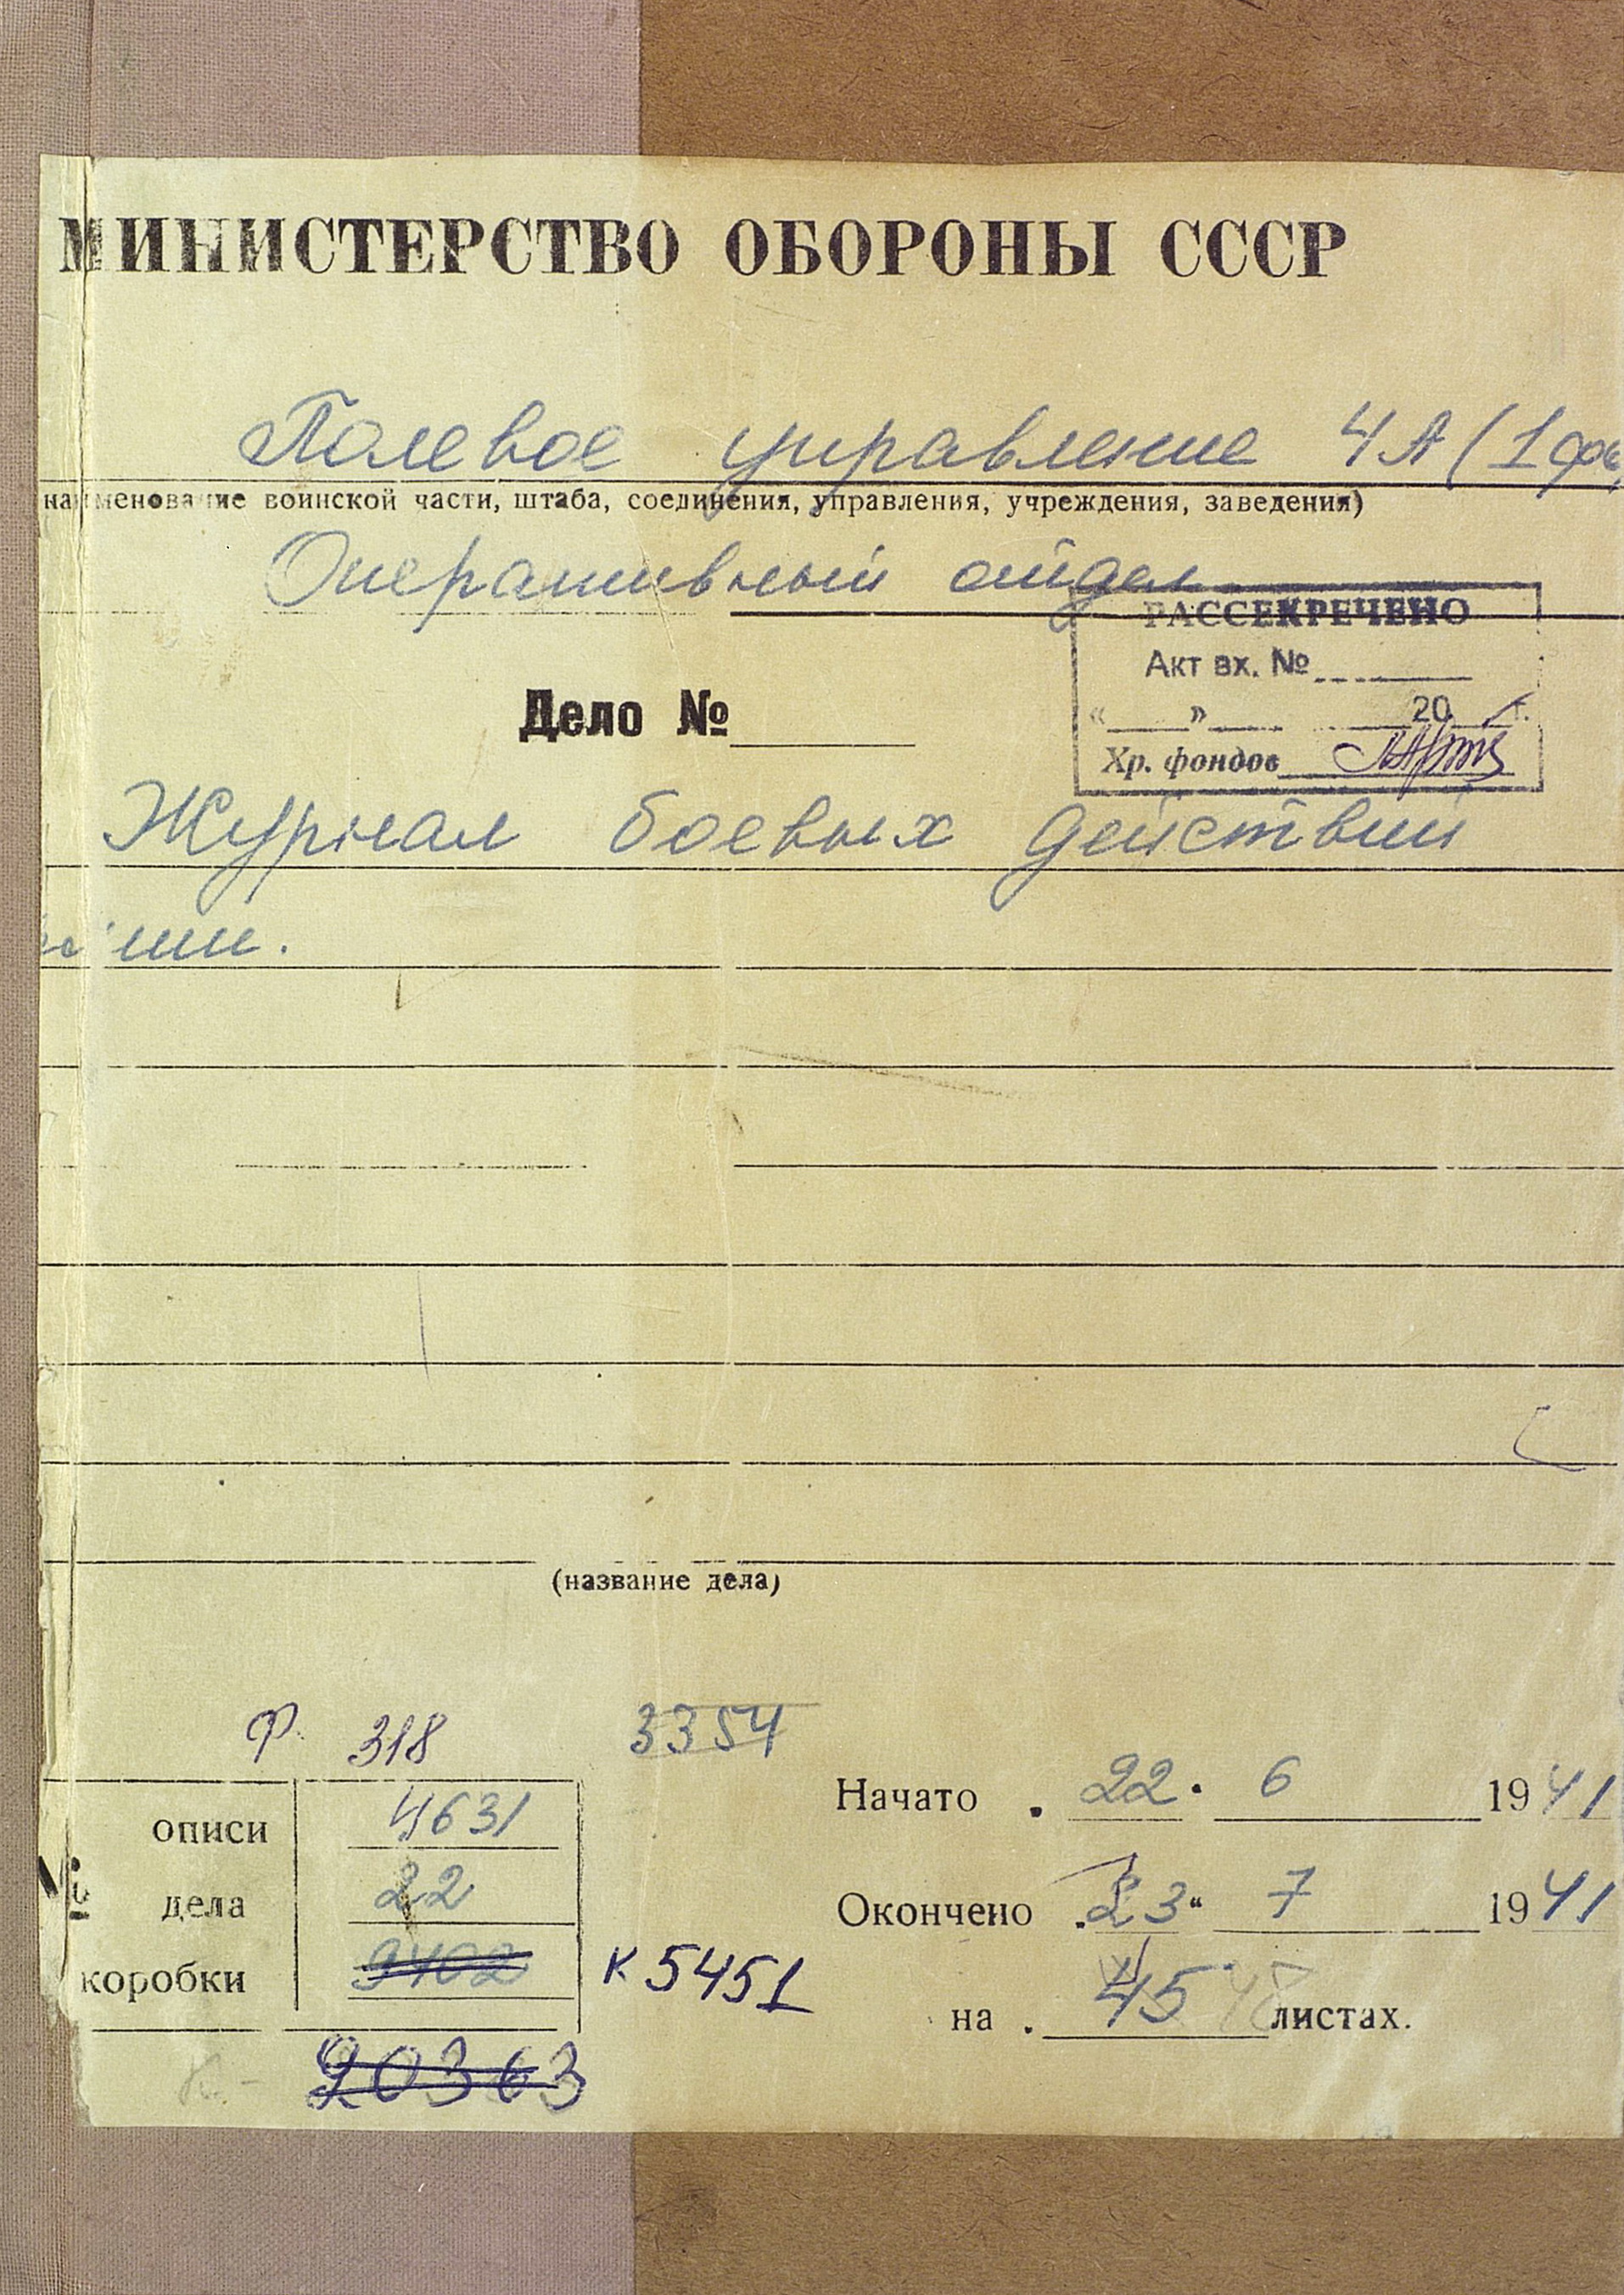 МИНИСТЕРСТВО ОБОРОНЫ СССР
Полевое управление 4А (1 фо
наименование воинской части, штаба, соединения, управления, учреждения, заведения)
Оперативный отдел
РАССЕКРЕЧЕНО
Акт вх. №
« » 20 г.
Хр. фондов
Дело №
Журнал боевых действий
ии.
(название дела)
Ф. 318
3354
№
описи 4631
дела 22
коробки 9402
к 5451
К. - 20363
Начато 22. 6 1941
Окончено 23" 7 1941
на 45 48 листах.